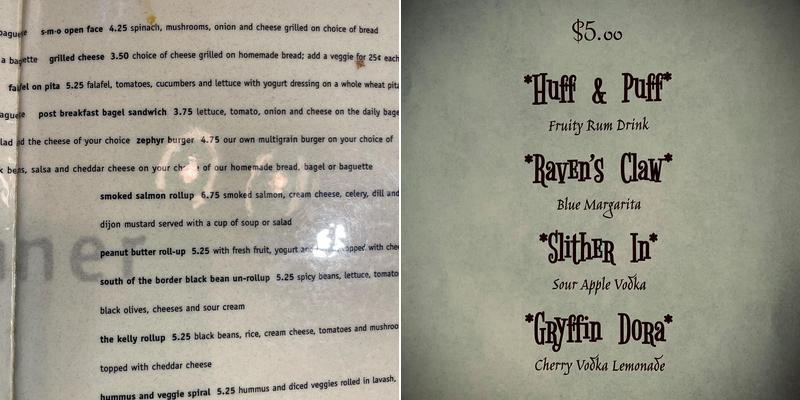 baguette s-m-o open face 4.25 spinach, mushrooms, onion and cheese grilled on choice of bread
a baguette grilled cheese 3.50 choice of cheese grilled on homemade bread; add a veggie for 25¢ each
falafel on pita 5.25 falafel, tomatoes, cucumbers and lettuce with yogurt dressing on a whole wheat pita
baguette post breakfast bagel sandwich 3.75 lettuce, tomato, onion and cheese on the daily bage
the cheese of your choice zephyr burger 4.75 our own multigrain burger on your choice of
salsa and cheddar cheese on your of our homemade bread, bagel or baguette
smoked salmon rollup 6.75 smoked salmon, cream cheese, celery, dill and
dijon mustard served with a cup of soup or salad
peanut butter roll-up 5.25 with fresh fruit, yogurt and topped with
south of the border black bean un-rollup 5.25 spicy beans, lettuce, tomato
black olives, cheeses and sour cream
the kelly rollup 5.25 black beans, rice, cream cheese, tomatoes and mushroo
topped with cheddar cheese
hummus and veggie spiral 5.25 hummus and diced veggies rolled in lavash,
$5.00
*Huff & Puff*
Fruity Rum Drink
*Raven's Claw*
Blue Margarita
*Slither In*
Sour Apple Vodka
*Gryffin Dora*
Cherry Vodka Lemonade